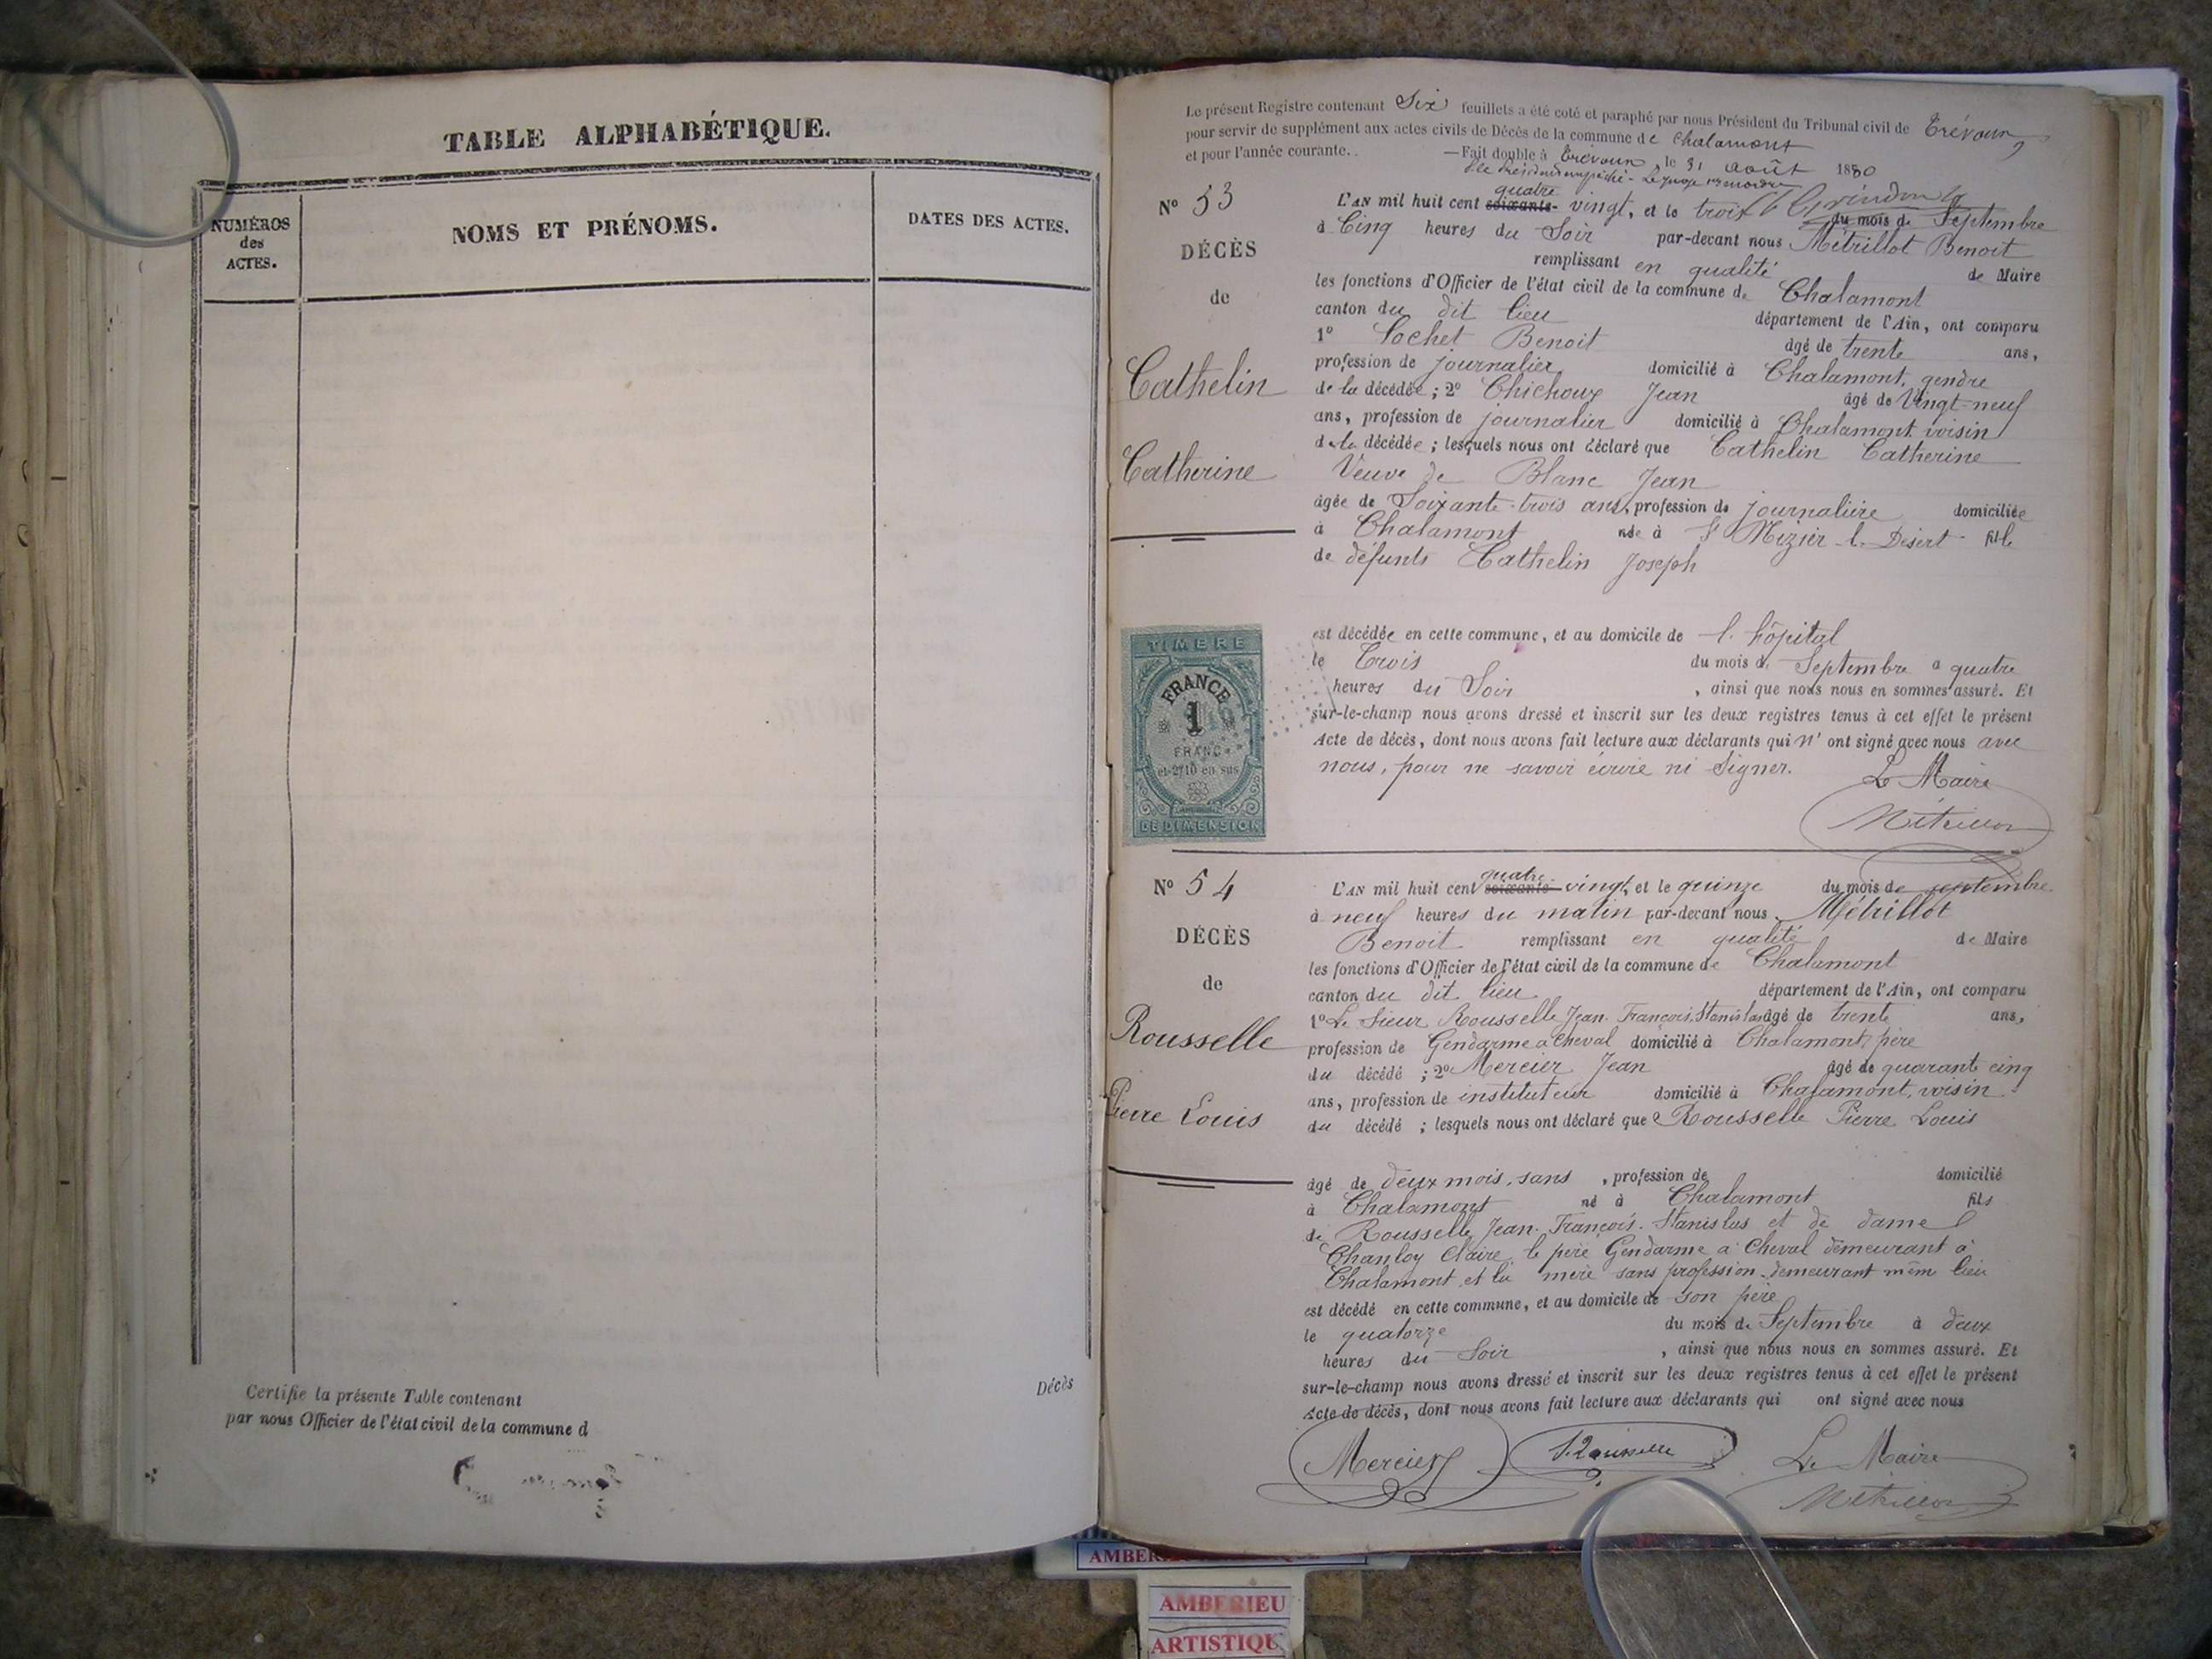 TABLE ALPHABÉTIQUE.
NUMÉROS
des
ACTES.
NOMS ET PRÉNOMS.
DATES DES ACTES.
Certifie la présente Table contenant
Décès
par nous Officier de l'état civil de la commune d
Le présent Registre contenant Six feuillets a été coté et paraphé par nous Président du Tribunal civil de Trévoux
pour servir de supplément aux actes civils de Décès de la commune de Chalamont
et pour l'année courante. — Fait double à Trévoux, le 31 août 1880
N° 53
DÉCÈS
de
Cathelin
Catherine
L'AN mil huit cent soixante- quatre vingt, et le trois du mois de Septembre
à Cinq heures du Soir par-devant nous Métrillot Benoit
remplissant en qualité de Maire
les fonctions d'Officier de l'état civil de la commune de Chalamont
canton du dit lieu département de l'Ain, ont comparu
1° Lochet Benoit âgé de trente ans,
profession de journalier domicilié à Chalamont, gendre
de la décédée ; 2° Chichoux Jean âgé de Vingt-neuf
ans, profession de journalier domicilié à Chalamont voisin
de la décédée ; lesquels nous ont déclaré que Cathelin Catherine
Veuve de Blanc Jean
âgée de Soixante-trois ans, profession de journalière domiciliée
à Chalamont née à St Nizier-le-Désert fille
de défunts Cathelin Joseph
est décédée en cette commune, et au domicile de l'hôpital
le Trois du mois de Septembre a quatre
heures du Soir , ainsi que nous nous en sommes assuré. Et
sur-le-champ nous avons dressé et inscrit sur les deux registres tenus à cet effet le présent
Acte de décès, dont nous avons fait lecture aux déclarants qui n' ont signé avec nous avec
nous, pour ne savoir écrire ni Signer.
Le Maire
Métrillot
TIMBRE
FRANCE
1
FRANC
et 2/10 en sus
DE DIMENSION
N° 54
DÉCÈS
de
Rousselle
Pierre Louis
L'AN mil huit cent soixante- quatre- vingt, et le quinze du mois de septembre
à neuf heures du matin par-devant nous Métrillot
Benoit remplissant en qualité de Maire
les fonctions d'Officier de l'état civil de la commune de Chalamont
canton du dit lieu département de l'Ain, ont comparu
1° Le Sieur Rousselle Jean-François Stanislas âgé de trente ans,
profession de Gendarme a Cheval domicilié à Chalamont, père
du décédé ; 2° Mercier Jean âgé de quarante cinq
ans, profession de instituteur domicilié à Chalamont, voisin
du décédé ; lesquels nous ont déclaré que Rousselle Pierre Louis
âgé de deux mois, sans , profession de domicilié
à Chalamont né à Chalamont fils
de Rousselle Jean-François-Stanislas et de dame
Chanloy Claire, le père Gendarme a Cheval demeurant a
Chalamont et la mère sans profession demeurant même lieu
est décédé en cette commune, et au domicile de son père
le quatorze du mois de Septembre à deux
heures du Soir , ainsi que nous nous en sommes assuré. Et
sur-le-champ nous avons dressé et inscrit sur les deux registres tenus à cet effet le présent
Acte de décès, dont nous avons fait lecture aux déclarants qui ont signé avec nous
Mercier
Rousselle
Le Maire
Métrillot
AMBERIEU
ARTISTIQU